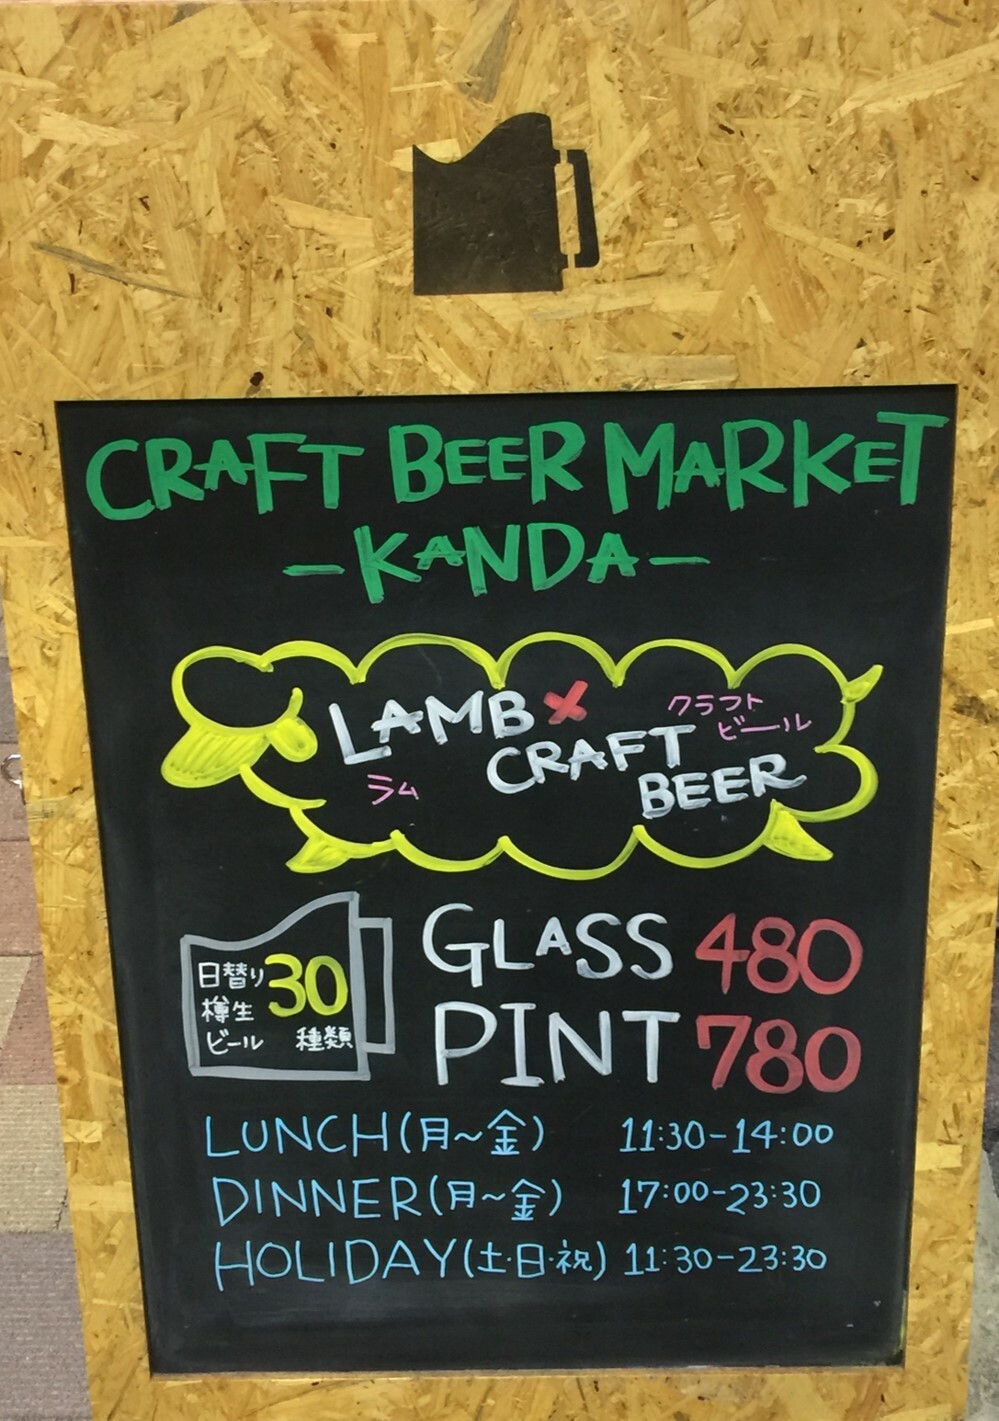 CRAFT BEER MARKET
-KANDA-
LAMB × クラフト
ビール
ラム CRAFT
BEER
日替り 30
樽生
ビール 種類
GLASS 480
PINT 780
LUNCH(月~金) 11:30-14:00
DINNER(月~金) 17:00-23:30
HOLIDAY(土·日·祝) 11:30-23:30